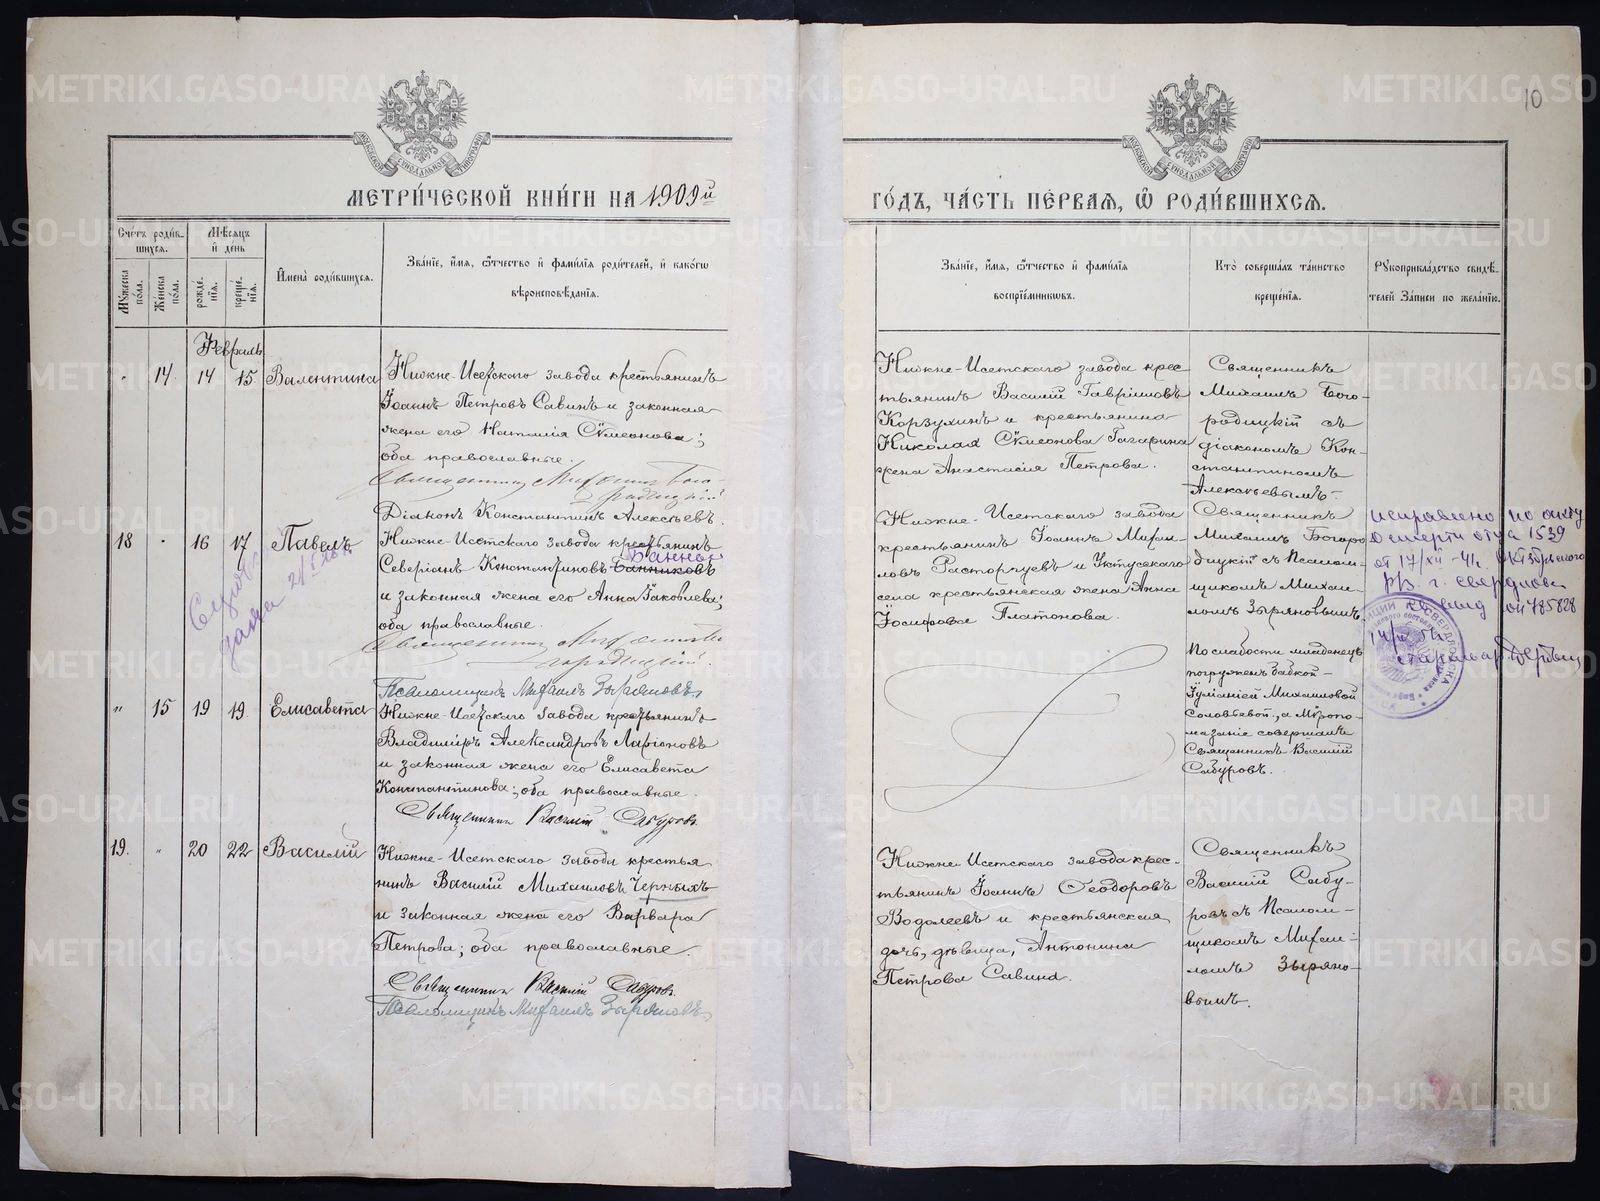 METRIKI.GASO-URAL.RU
10
МОСКОВСКОЙ СѴНОДАЛЬНОЙ ТИПОГРАФІИ
МЕТРИ́ЧЕСКОЙ КНИ́ГИ НА 1909й
ГО́ДЪ, ЧА́СТЬ ПЕ́РВАѦ, Ѿ РОДИ́ВШИХСѦ.
Сче́тъ роди́вшихсѧ.
Мꙋ́жеска по́ла.
Же́нска по́ла.
Мѣ́сѧцъ и҆ де́нь
рожде́нїѧ.
креще́нїѧ.
И҆мена̀ роди́вшихсѧ.
Зва́нїе, и҆́мѧ, ѻ҆́тчество и҆ фами́лїѧ роди́телей, и҆ како́гѡ
вѣроисповѣ́данїѧ.
Зва́нїе, и҆́мѧ, ѻ҆́тчество и҆ фами́лїѧ
воспрїе́мникѡвъ.
Кто̀ соверша́лъ та́инство
креще́нїѧ.
Рꙋкоприкла́дство свидѣ́телей за́писи по жела́нїю.
Февраль
" 14 14 15 Валентина
Нижне-Исетскаго завода крестьянинъ
Іоаннъ Петровъ Савинъ и законная
жена его Наталія Сѵмеонова;
оба православные.
Священникъ Михаилъ Богородицкій
Діаконъ Константинъ Алексѣевъ.
Нижне-Исетскаго завода крес-
тьянинъ Василій Гавріиловъ
Корзухинъ и крестьянина
Николая Сѵмеонова Гагарина
жена Анастасія Петрова.
Священникъ
Михаилъ Бого-
родицкій съ
діакономъ Кон-
стантиномъ
Алексѣевымъ.
18 " 16 17 Павелъ
Нижне-Исетскаго завода крестьянинъ
Северіанъ Константиновъ Банниковъ
Банных
и законная жена его Анна Іаковлева;
оба православные.
Священникъ Михаилъ Богородицкій.
Псаломщикъ Михаилъ Зыряновъ.
Нижне-Исетскаго завода
крестьянинъ Іоаннъ Михаи-
ловъ Расторгуевъ и Уктусскаго
села крестьянская жена Анна
Іосифова Платонова.
Священникъ
Михаилъ Богоро
дицкій съ Псалом-
щикомъ Михаи-
ломъ Зыряновымъ
исправлено по акту
о смерти отца 1539
от 17/XII-41г. Октябрьского
" 15 19 19 Елисавета
Нижне-Исетскаго завода крестьянинъ
Владиміръ Александровъ Ларіоновъ
и законная жена его Елисавета
Константинова; оба православные.
Священникъ Василій Сабуровъ
По слабости младенецъ
погруженъ бабкой
Іуліаніей Михаиловой
Соловьевой, а Мѵропо-
мазаніе совершалъ
Священникъ Василій
Сабуровъ.
19. " 20 22 Василій
Нижне-Исетскаго завода крестья
нинъ Василій Михаиловъ Черныхъ
и законная жена его Варвара
Петрова; оба православные.
Священникъ Василій Сабуровъ.
Псаломщикъ Михаилъ Зыряновъ.
Нижне-Исетскаго завода крес-
тьянинъ Іоаннъ Ѳеодоровъ
Водолеевъ и крестьянская
дочь, дѣвица, Антонина
Петрова Савина.
Священникъ
Василій Сабу-
ровъ съ Псалом-
щикомъ Михаи-
ломъ Зыряно-
вымъ.